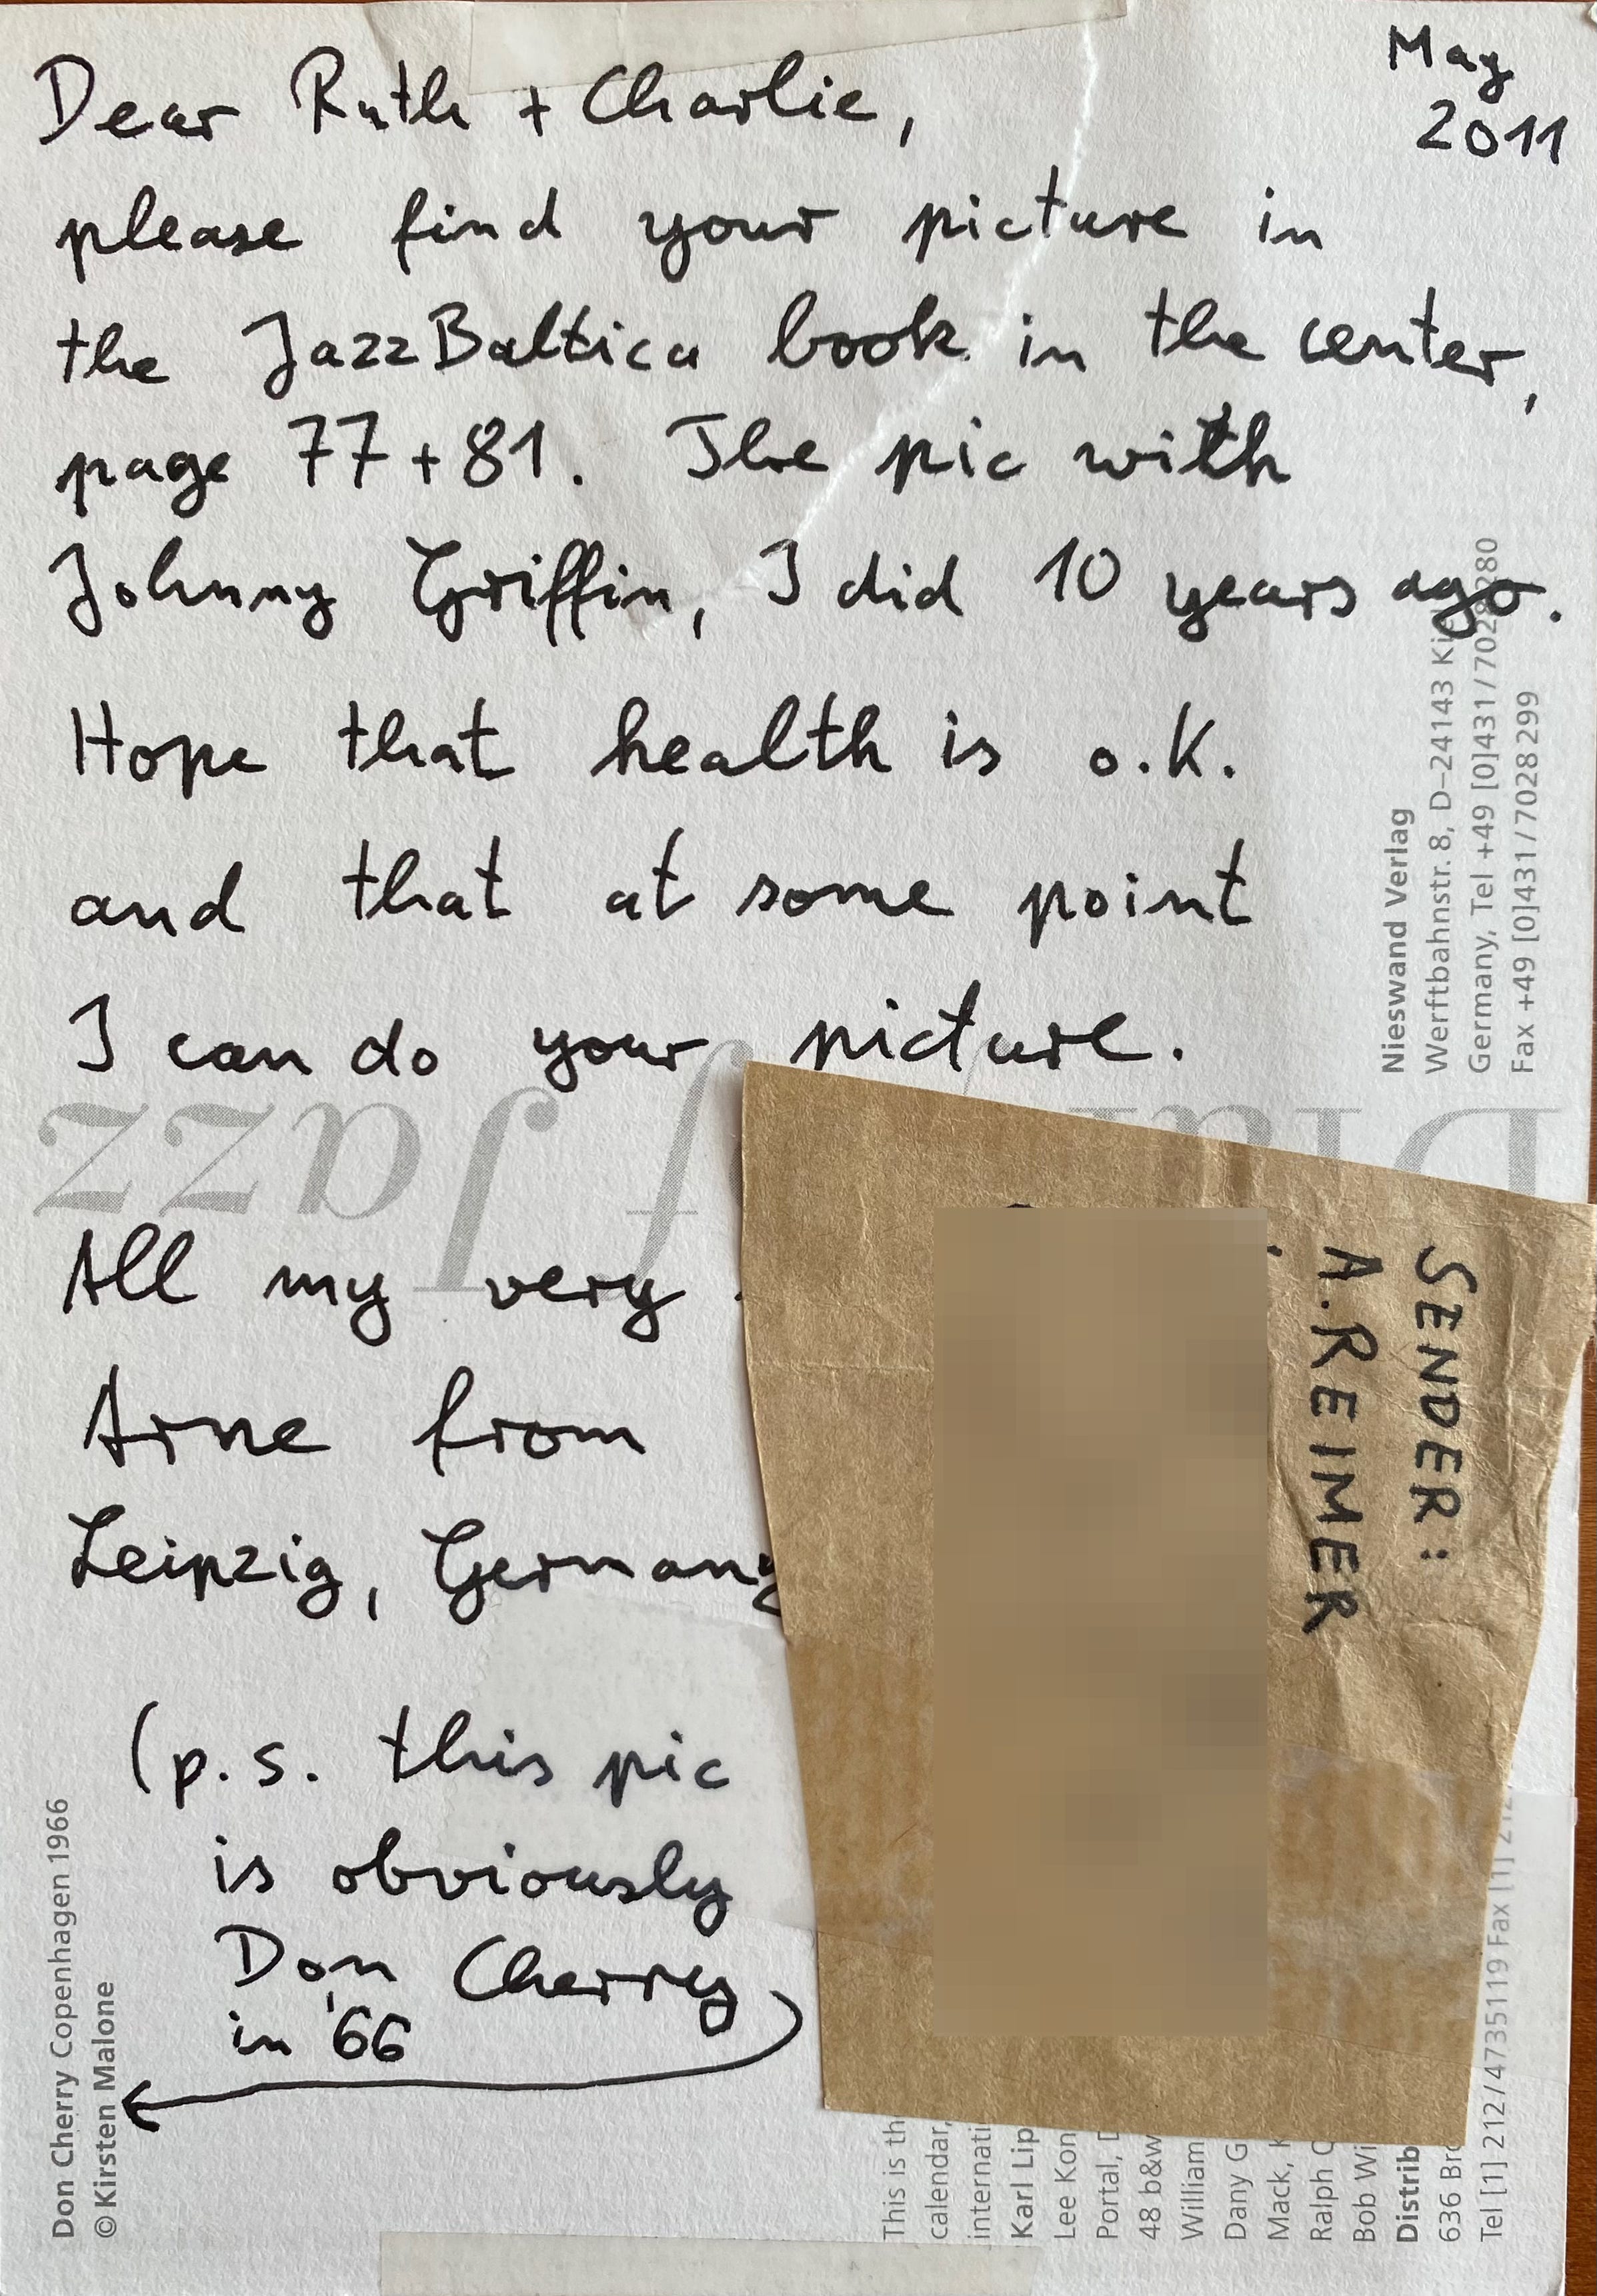 May
2011
Dear Ruth + Charlie,
please find your picture in
the JazzBaltica book in the center,
page 77+81. The pic with
Johnny Griffin, I did 10 years ago.
Hope that health is o.K.
and that at some point
I can do your picture.
All my very
Arne from
Leipzig, Germany
(p.s. this pic
is obviously
Don Cherry
in '66
SENDER:
A. REIMER
Jazz
Nieswand Verlag
Werftbahnstr. 8, D–24143
Germany, Tel +49 [0]431/7028280
Fax +49 [0]431/7028299
Don Cherry Copenhagen 1966
© Kirsten Malone
This is th
calendar,
internati
Karl Lip
Lee Kon
Portal, D
48 b&w
William
Dany G
Mack, K
Ralph
Bob Wi
Distrib
636 Br
Tel [1] 212/4735119 Fax [1] 212